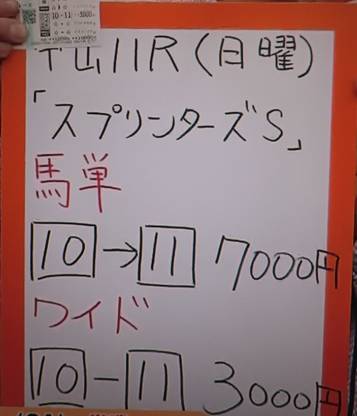 10-11
中山11R(日曜)
「スプリンターズS」
馬単
10→11 7000円
ワイド
10-11 3000円